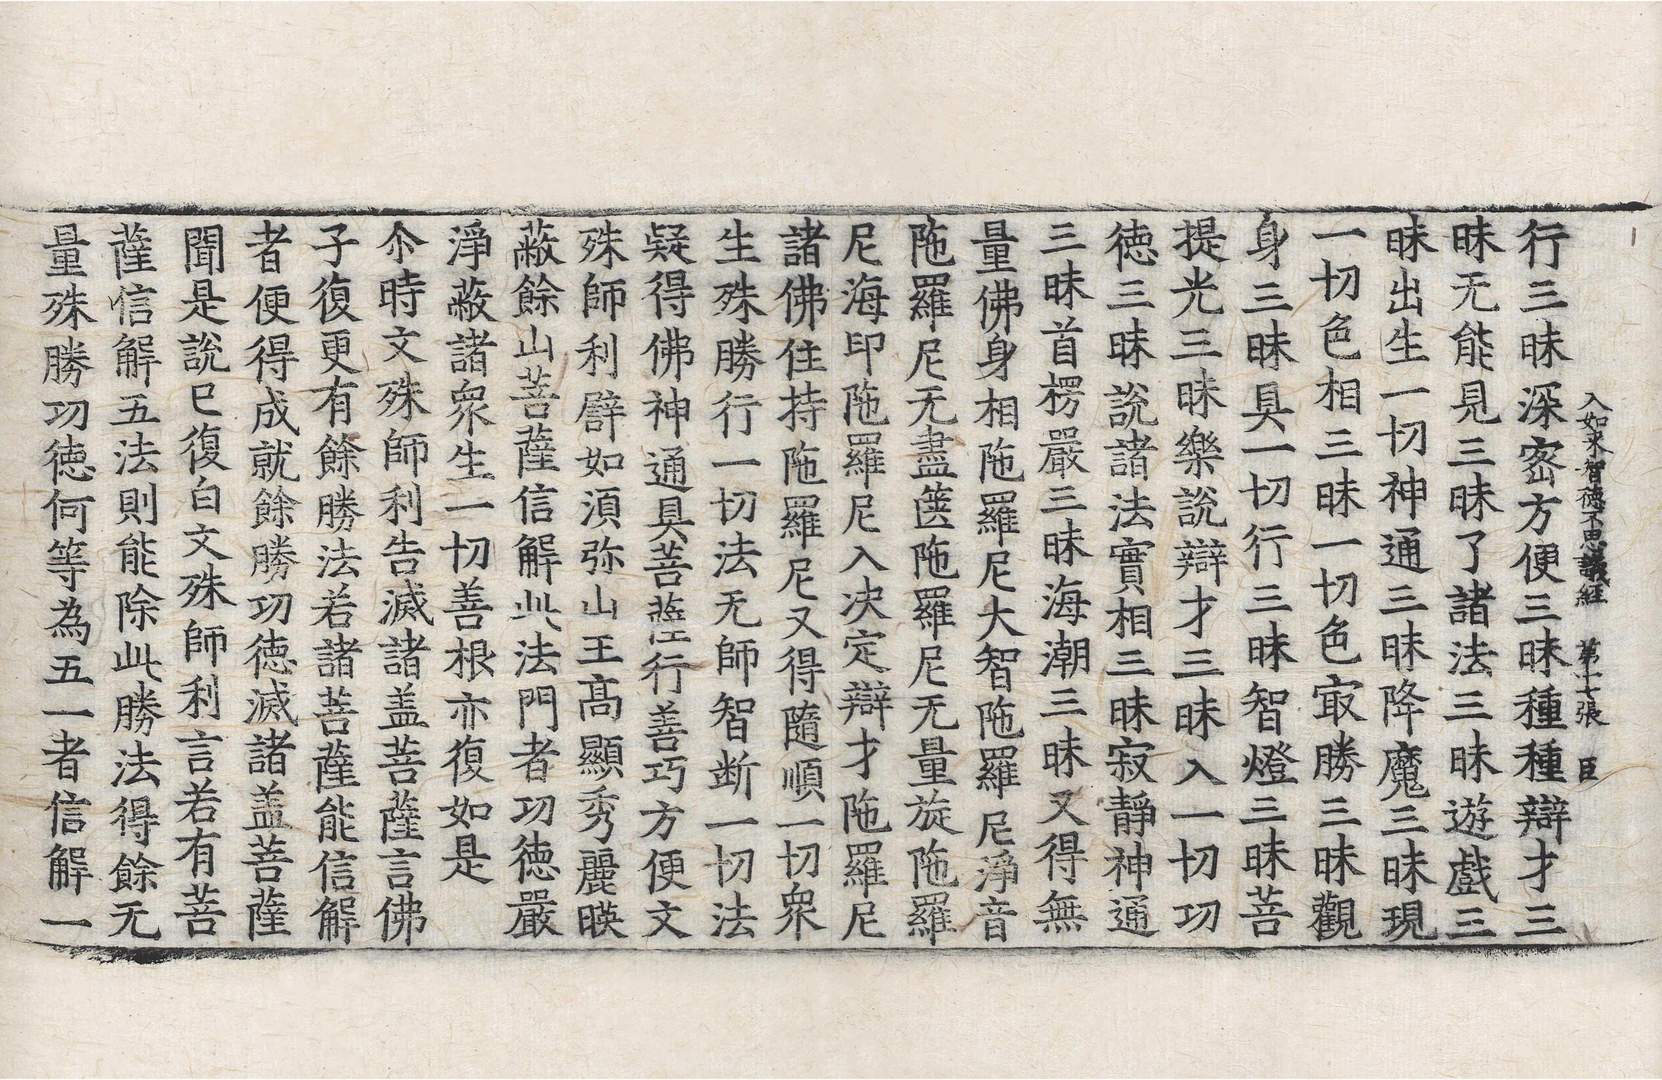 入如来智德不思議經 第十七張 臣
行三昧深密方便三昧種種辯才三
昧无能見三昧了諸法三昧遊戲三
昧出生一切神通三昧降魔三昧現
一切色相三昧一切色㝡勝三昧觀
身三昧具一切行三昧智燈三昧菩
提光三昧樂說辯才三昧入一切功
德三昧說諸法實相三昧寂靜神通
三昧首楞嚴三昧海潮三昧又得無
量佛身相陁羅尼大智陁羅尼淨音
陁羅尼无盡篋陁羅尼无量旋陁羅
尼海印陁羅尼入决定辯才陁羅尼
諸佛住持陁羅尼又得隨順一切衆
生殊勝行一切法无師智断一切法
疑得佛神通具菩薩行善巧方便文
殊師利譬如湏弥山王髙顯秀麗暎
蔽餘山菩薩信解此法門者功德嚴
淨蔽諸衆生一切善根亦復如是
尒時文殊師利告滅諸盖菩薩言佛
子復更有餘勝法若諸菩薩能信解
者便得成就餘勝功德滅諸盖菩薩
聞是說已復白文殊師利言若有菩
薩信解五法則能除此勝法得餘无
量殊勝功德何等為五一者信解一